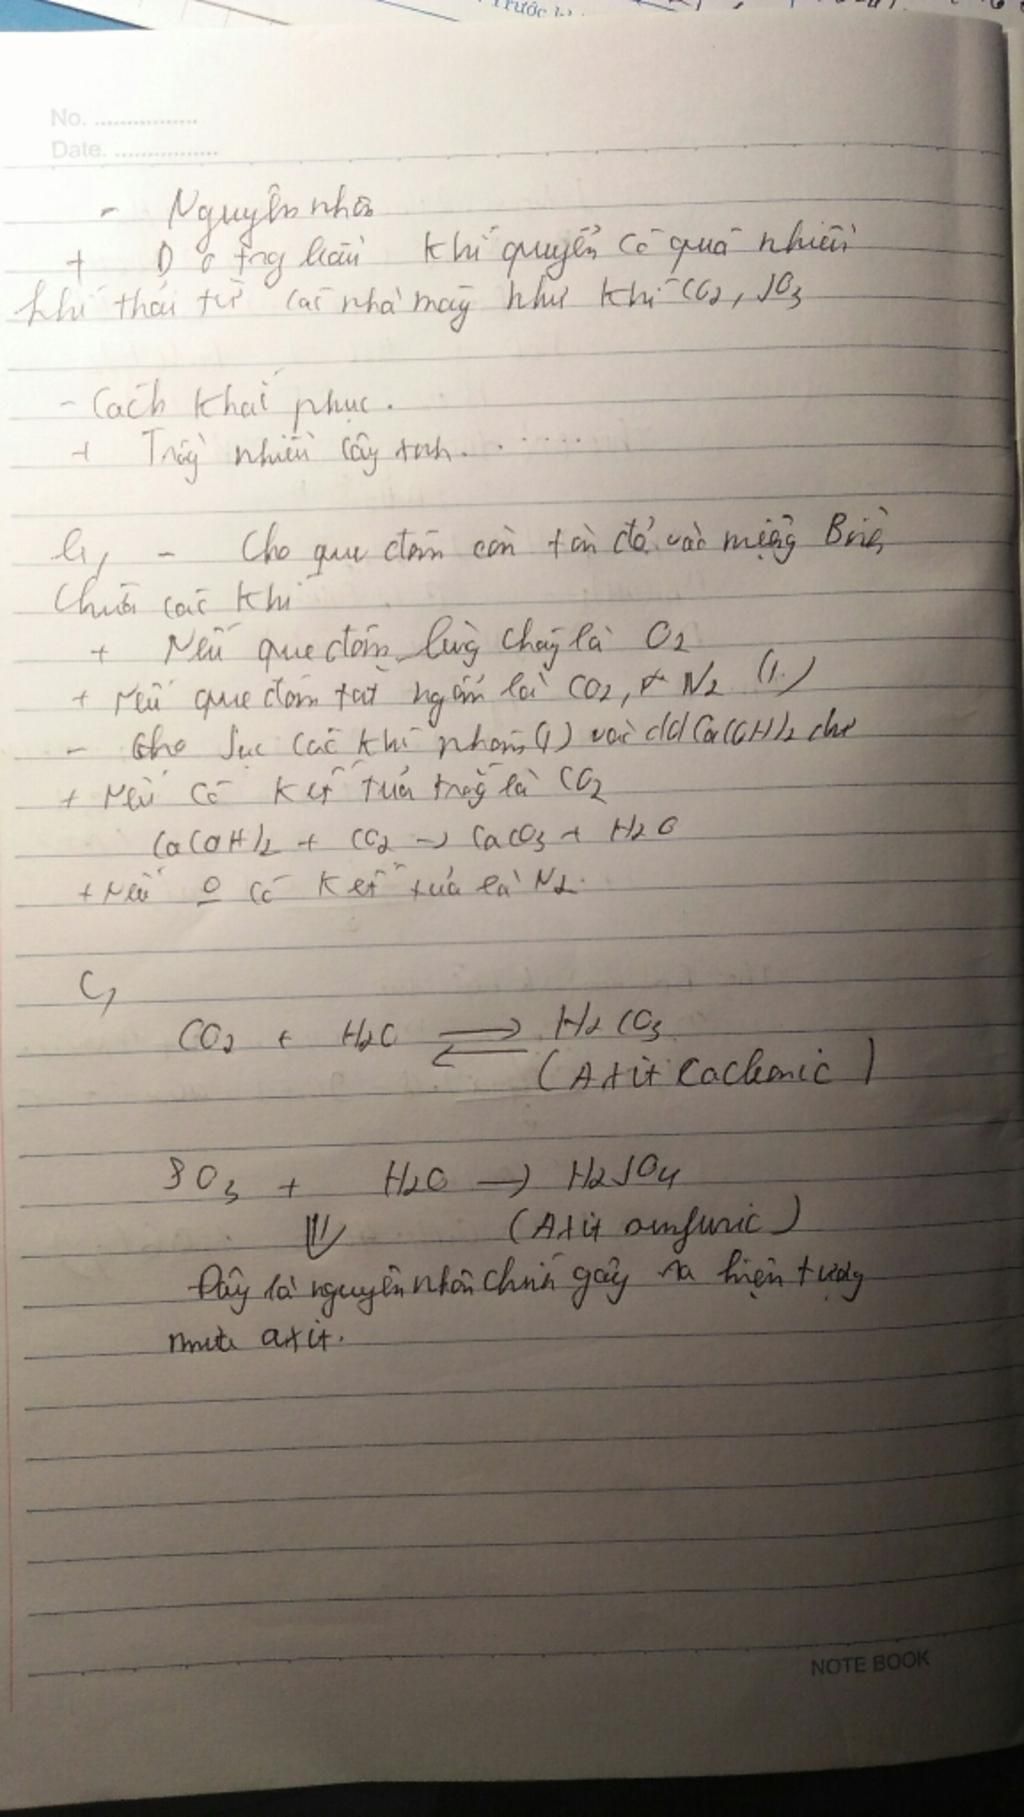 Trước
No. ................
Date. ................
- Nguyên nhân
+ Do trong bầu khí quyển có quá nhiều
khí thải từ các nhà máy như khí CO2, SO3
- Cách khắc phục.
+ Trồng nhiều cây xanh. ......
b, - Cho que đóm còn tàn đỏ vào miệng Bình
chứa các khí
+ Nếu que đóm bùng cháy là O2
+ Nếu que đóm tắt ngấm là CO2, N2 (1)
- Cho sục các khí nhóm (1) vào dd Ca(OH)2 dư
+ Nếu có kết tủa trắng là CO2
Ca(OH)2 + CO2 → CaCO3 + H2O
+ Nếu o có kết tủa là N2.
C,
CO2 + H2O ⇌ H2CO3
(Axit cacbonic)
SO3 + H2O → H2SO4
⇓ (Axit sunfuric)
Đây là nguyên nhân chính gây ra hiện tượng
mưa axit.
NOTE BOOK